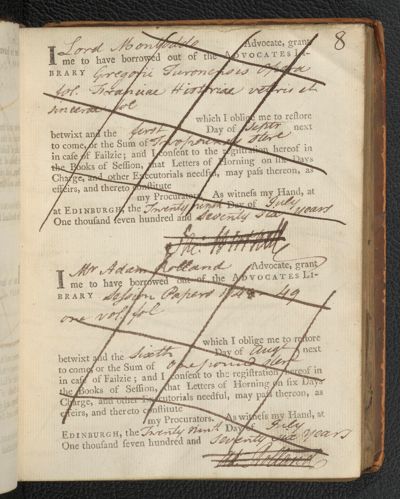 8
I Lord Monboddo Advocate, grant
me to have borrowed out of the ADVOCATES LI-
BRARY Gregorii Turonensis Opera
fol. Franciae Historiae veteris et
sincerae fol
which I oblige me to reſtore
betwixt and the first Day of Septr next
to come, or the Sum of Two pounds Sterl
in caſe of Failzie; and I conſent to the regiſtration hereof in
the Books of Seſſion, that Letters of Horning on ſix Days
Charge, and other Executorials needful, may paſs thereon, as
effeirs, and thereto conſtitute
my Procurators. As witneſs my Hand, at
at EDINBURGH, the Twenty Day of July
One thouſand ſeven hundred and Seventy Six years
I Mr Adam Rolland Advocate, grant
me to have borrowed out of the ADVOCATES LI-
BRARY Session Papers 49
one vol. fol
which I oblige me to reſtore
betwixt and the Sixth Day of Augt next
to come, or the Sum of One pound Sterl
in caſe of Failzie; and I conſent to the regiſtration hereof in
the Books of Seſſion, that Letters of Horning on ſix Days
Charge, and other Executorials needful, may paſs thereon, as
effeirs, and thereto conſtitute
my Procurators. As witneſs my Hand, at
EDINBURGH, the Twenty Ninth Day of July
One thouſand ſeven hundred and Seventy Six years
Ad. Rolland